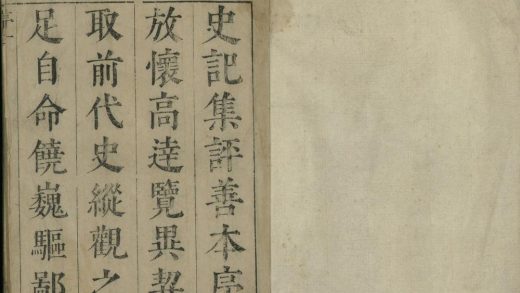 史記集評善本序
放懷高達覽異契
取前代史縱觀之
足自命饒巍驅鄙